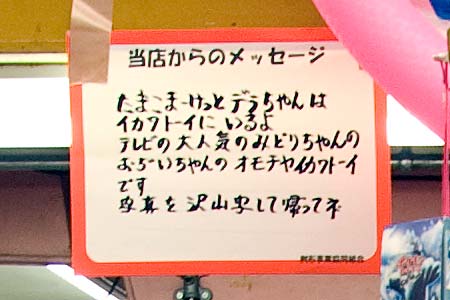 当店からのメッセージ
たまこまーけっとデラちゃんは
イカワトーイにいるよ
テレビの大人気のみどりちゃんの
おぢいちゃんのオモチヤイカワトーイ
です
写真を沢山写して帰ってネ